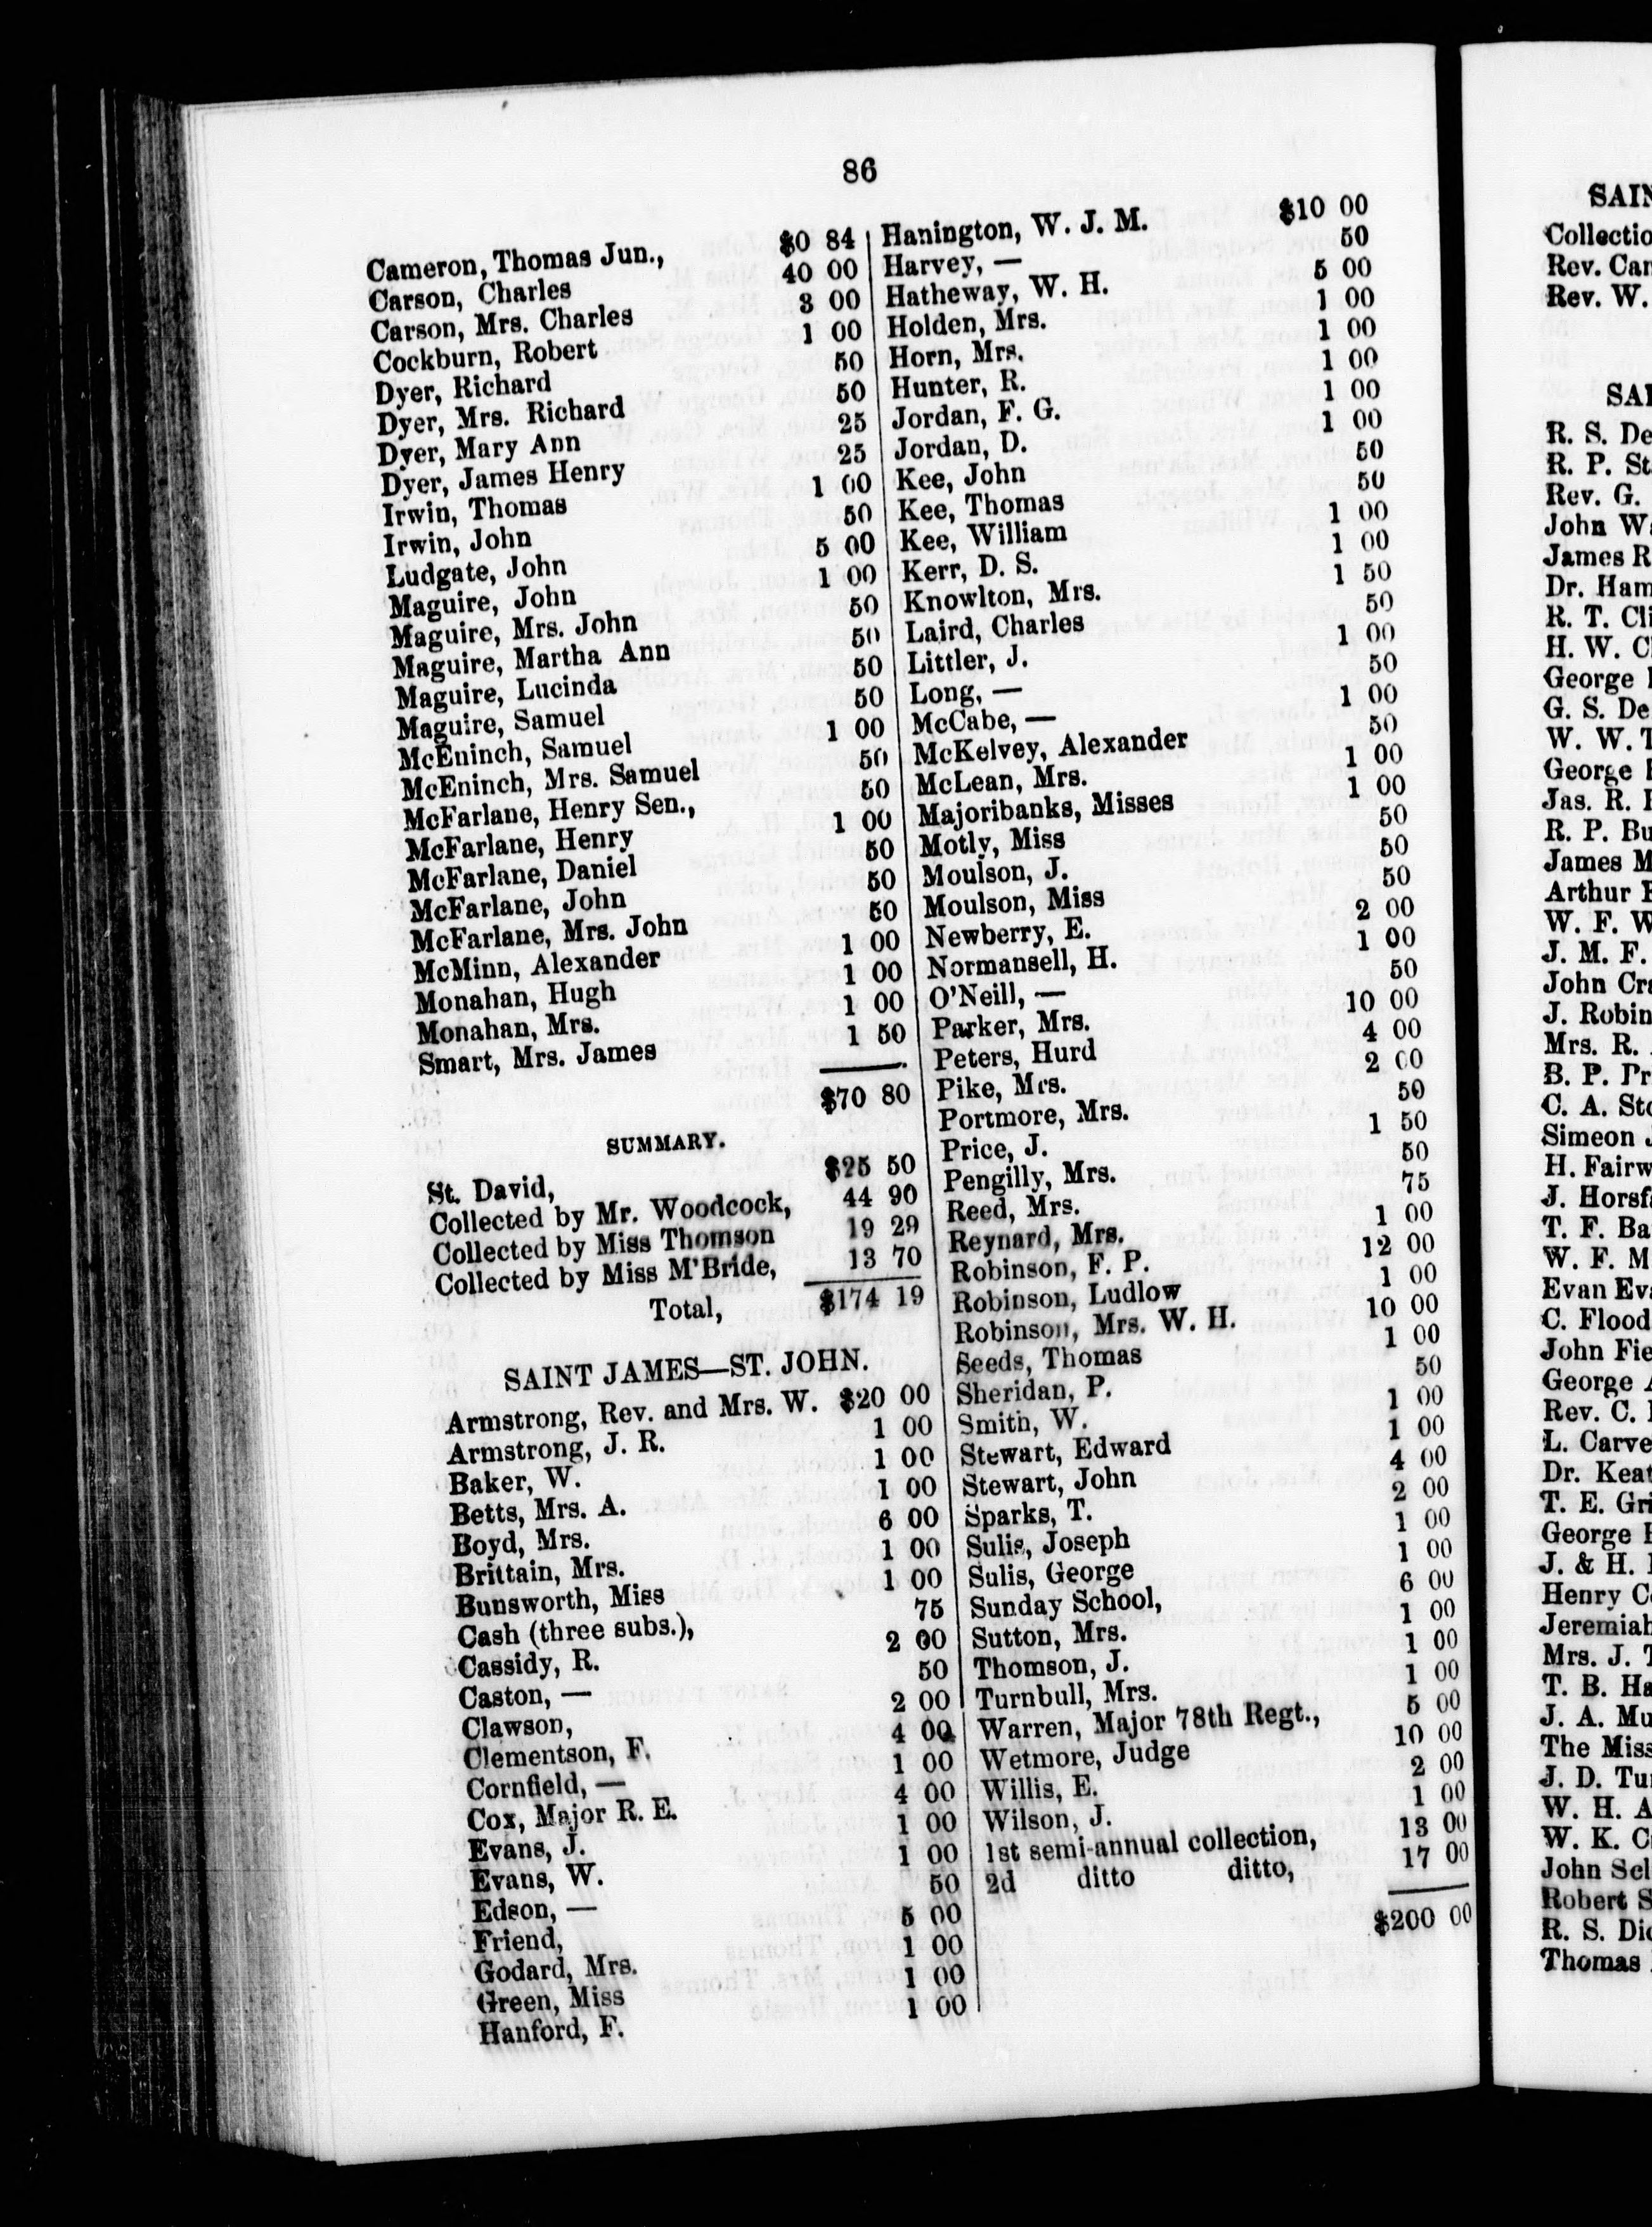 86
Cameron, Thomas Jun., $0 84
Carson, Charles 40 00
Carson, Mrs. Charles 3 00
Cockburn, Robert 1 00
Dyer, Richard 50
Dyer, Mrs. Richard 50
Dyer, Mary Ann 25
Dyer, James Henry 25
Irwin, Thomas 1 00
Irwin, John 50
Ludgate, John 5 00
Maguire, John 1 00
Maguire, Mrs. John 50
Maguire, Martha Ann 50
Maguire, Lucinda 50
Maguire, Samuel 50
McEninch, Samuel 1 00
McEninch, Mrs. Samuel 50
McFarlane, Henry Sen., 50
McFarlane, Henry 1 00
McFarlane, Daniel 50
McFarlane, John 50
McFarlane, Mrs. John 50
McMinn, Alexander 1 00
Monahan, Hugh 1 00
Monahan, Mrs. 1 00
Smart, Mrs. James 1 50
$70 80
SUMMARY.
St. David, $25 50
Collected by Mr. Woodcock, 44 90
Collected by Miss Thomson 19 29
Collected by Miss M'Bride, 13 70
Total, $174 19
SAINT JAMES—ST. JOHN.
Armstrong, Rev. and Mrs. W. $20 00
Armstrong, J. R. 1 00
Baker, W. 1 00
Betts, Mrs. A. 1 00
Boyd, Mrs. 6 00
Brittain, Mrs. 1 00
Bunsworth, Miss 1 00
Cash (three subs.), 75
Cassidy, R. 2 00
Caston, — 50
Clawson, 2 00
Clementson, F. 4 00
Cornfield, — 1 00
Cox, Major R. E. 4 00
Evans, J. 1 00
Evans, W. 1 00
Edson, — 50
Friend, 5 00
Godard, Mrs. 1 00
Green, Miss 1 00
Hanford, F. 1 00
Hanington, W. J. M. $10 00
Harvey, — 50
Hatheway, W. H. 5 00
Holden, Mrs. 1 00
Horn, Mrs. 1 00
Hunter, R. 1 00
Jordan, F. G. 1 00
Jordan, D. 1 00
Kee, John 50
Kee, Thomas 50
Kee, William 1 00
Kerr, D. S. 1 00
Knowlton, Mrs. 1 50
Laird, Charles 50
Littler, J. 1 00
Long, — 50
McCabe, — 1 00
McKelvey, Alexander 50
McLean, Mrs. 1 00
Majoribanks, Misses 1 00
Motly, Miss 50
Moulson, J. 50
Moulson, Miss 50
Newberry, E. 2 00
Normansell, H. 1 00
O'Neill, — 50
Parker, Mrs. 10 00
Peters, Hurd 4 00
Pike, Mrs. 2 00
Portmore, Mrs. 50
Price, J. 1 50
Pengilly, Mrs. 50
Reed, Mrs. 75
Reynard, Mrs. 1 00
Robinson, F. P. 12 00
Robinson, Ludlow 1 00
Robinson, Mrs. W. H. 10 00
Seeds, Thomas 1 00
Sheridan, P. 50
Smith, W. 1 00
Stewart, Edward 1 00
Stewart, John 4 00
Sparks, T. 2 00
Sulis, Joseph 1 00
Sulis, George 1 00
Sunday School, 6 00
Sutton, Mrs. 1 00
Thomson, J. 1 00
Turnbull, Mrs. 1 00
Warren, Major 78th Regt., 5 00
Wetmore, Judge 10 00
Willis, E. 2 00
Wilson, J. 1 00
1st semi-annual collection, 13 00
2d ditto ditto, 17 00
$200 00
Rev. W.
R. S. De
R. P. St
Rev. G.
James R
H. W.
George
G. S. De
W. W. T
George
Jas. R.
R. P. Bu
James M
Arthur
W. F. W
J. M. F.
J. Robin
Mrs. R.
B. P. Pr
C. A. Sto
Simeon
H. Fairw
J. Horsf
T. F. Ba
W. F. M
Evan Ev
C. Flood
John Fie
George
Rev. C.
L. Carve
Dr. Keat
T. E. Gri
George
J. & H.
Henry C
Jeremiah
Mrs. J. T
T. B. Ha
J. A. Mu
The Miss
J. D. Tu
W. H. A
W. K. C
John Sel
Robert S
R. S. Di
Thomas